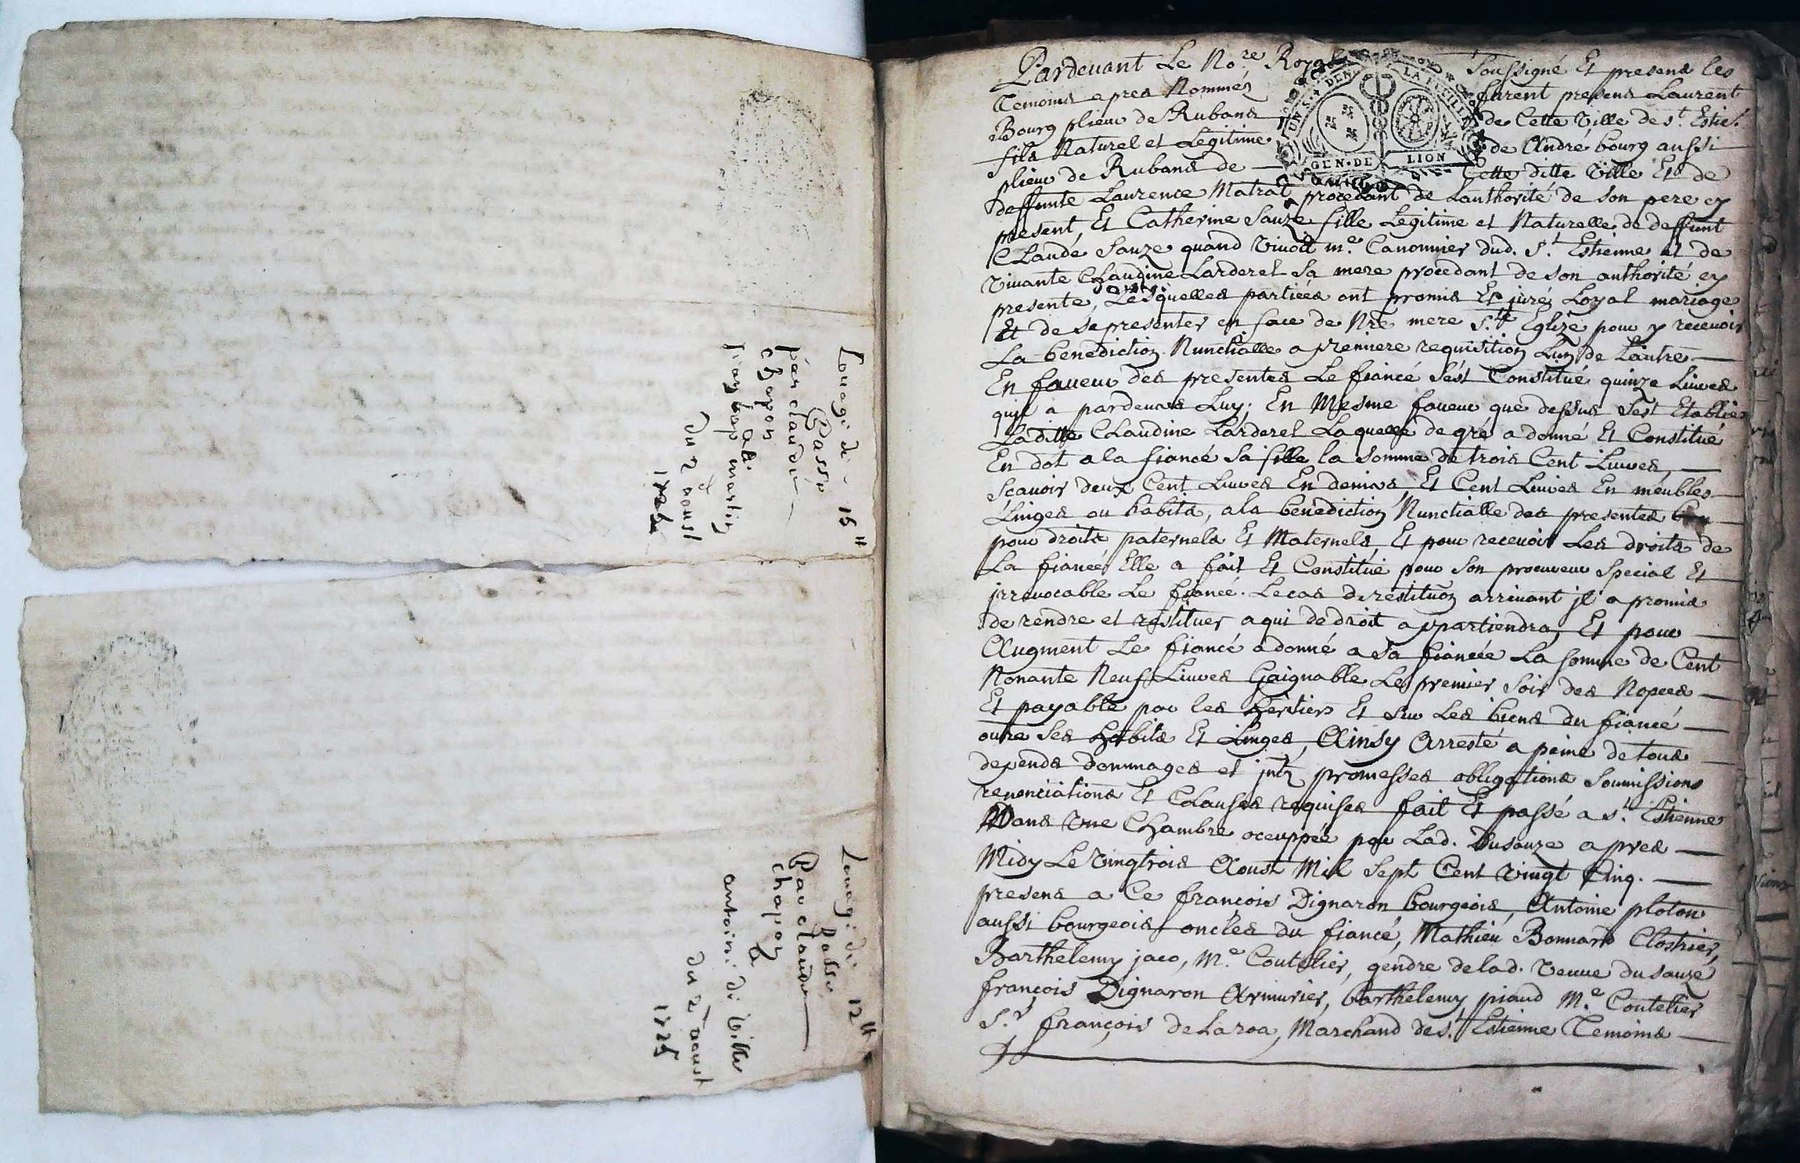 Louage de 15ᵗᵗ
Passé
par claude
chapon
a
jean bap martin
du 2ᵉ aoust
1725
Louage de 12ᵗᵗ
Passé
Par claude
chapon
a
antoine di ville
du 2ᵉ aoust
1725
Pardevant Le No.ʳᵉ Royal Soussigné Et presens les
Temoins apres Nommés furent presens Laurent
Bourg plieur de Rubans de Cette Ville de sᵗ Estieᵉ
fils Naturel et Legitime de André bourg aussi
plieur de Rubans de Cette ditte Ville Et de
deffunte Laurence Matrat procedant de Lauthorité de son pere cy
present, Et Catherine Sauze fille Legitime et Naturelle de deffunt
Claude Sauze quand vivoit mᵉ Canonnier dud. Sᵗ Estienne et de
vivante Claudine Larderet Sa mere procedant de son authorité cy
presente, Lesquelles parties ont promis Et juré Loyal mariage
Et de se presenter en face de Nre mere Sᵗᵉ Eglize pour y recevoir
La benediction Nunchialle a premiere requisition Lun de Lautre
En faveur des presentes Le fiancé Sest Constitué quinze Livres
quil a pardevers Luy, En Mesme faveur que dessus Sest Etablie
Laditte Claudine Larderet Laquelle de gré a donné Et Constitué
En dot a la fiancé Sa fille la Somme de trois Cent Livres,
Scavoir deux Cent Livres En deniers Et Cent Livres En meubles
Linges ou habits, a la benediction Nunctialle des presentes
pour droits paternels Et Maternels Et pour recevoir Les droits de
La fiancée Elle a fait Et Constitué pour Son procureur Special Et
jrrevocable Le fiancé. Le cas de restitution arrivant jl a promis
de rendre et restituer a qui de droit appartiendra, Et pour
Augment Le fiancé a donné a sa fiancée La somme de Cent
Nonante Neuf Livres Gaignable Le premier Soir des Nopces
Et payable par les heritiers Et Sur Les biens du fiancé
outre Ses habits Et Linges, Ainsy Arresté a peine de tous
depends dommages et jntz promesses obligations Soumissions
renonciations Et Clauses requises fait Et passé a sᵗ Estienne
Dans Une Chambre occuppée par Lad. Dusauze apres
Midy Le vingtrois Aoust Mil Sept Cent vingt Cinq.
presens a Ce françois Dignaron bourgeois, Antoine ploton
aussi bourgeois oncles du fiancé, Mathieu Bonnard Clostrier,
Barthelemy jaco, Mᵉ Coutelier, gendre de lad. veuve du sauze
françois Dignaron Armurier, barthelemy piaud Mᵉ Coutelier
Sʳ françois de Laroa, Marchand de sᵗ Estienne Temoins
GEN·DE LION